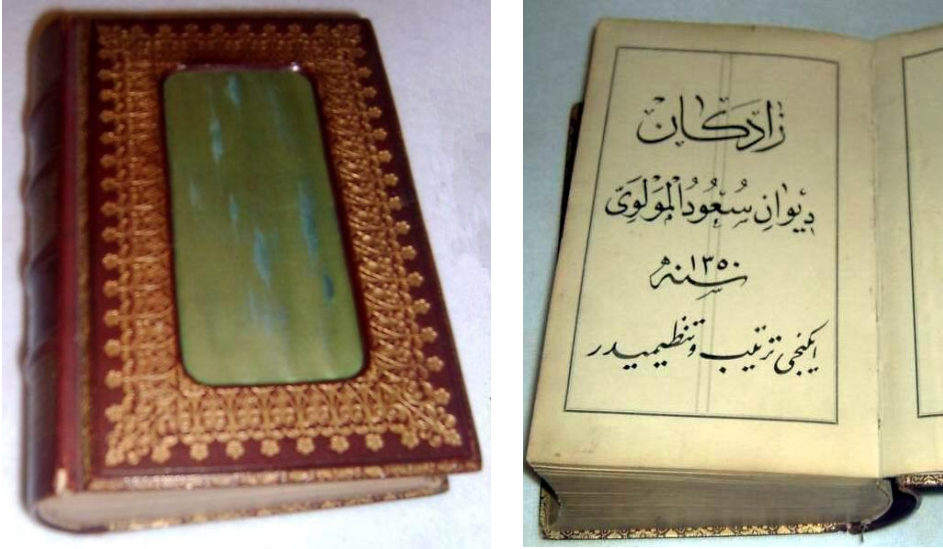 زادكان
ديوانِ سُعُودُ الْمَوْلَوِىّ
١٣٥٠ سنه
ايكنجى ترتيب و تنظيميدر